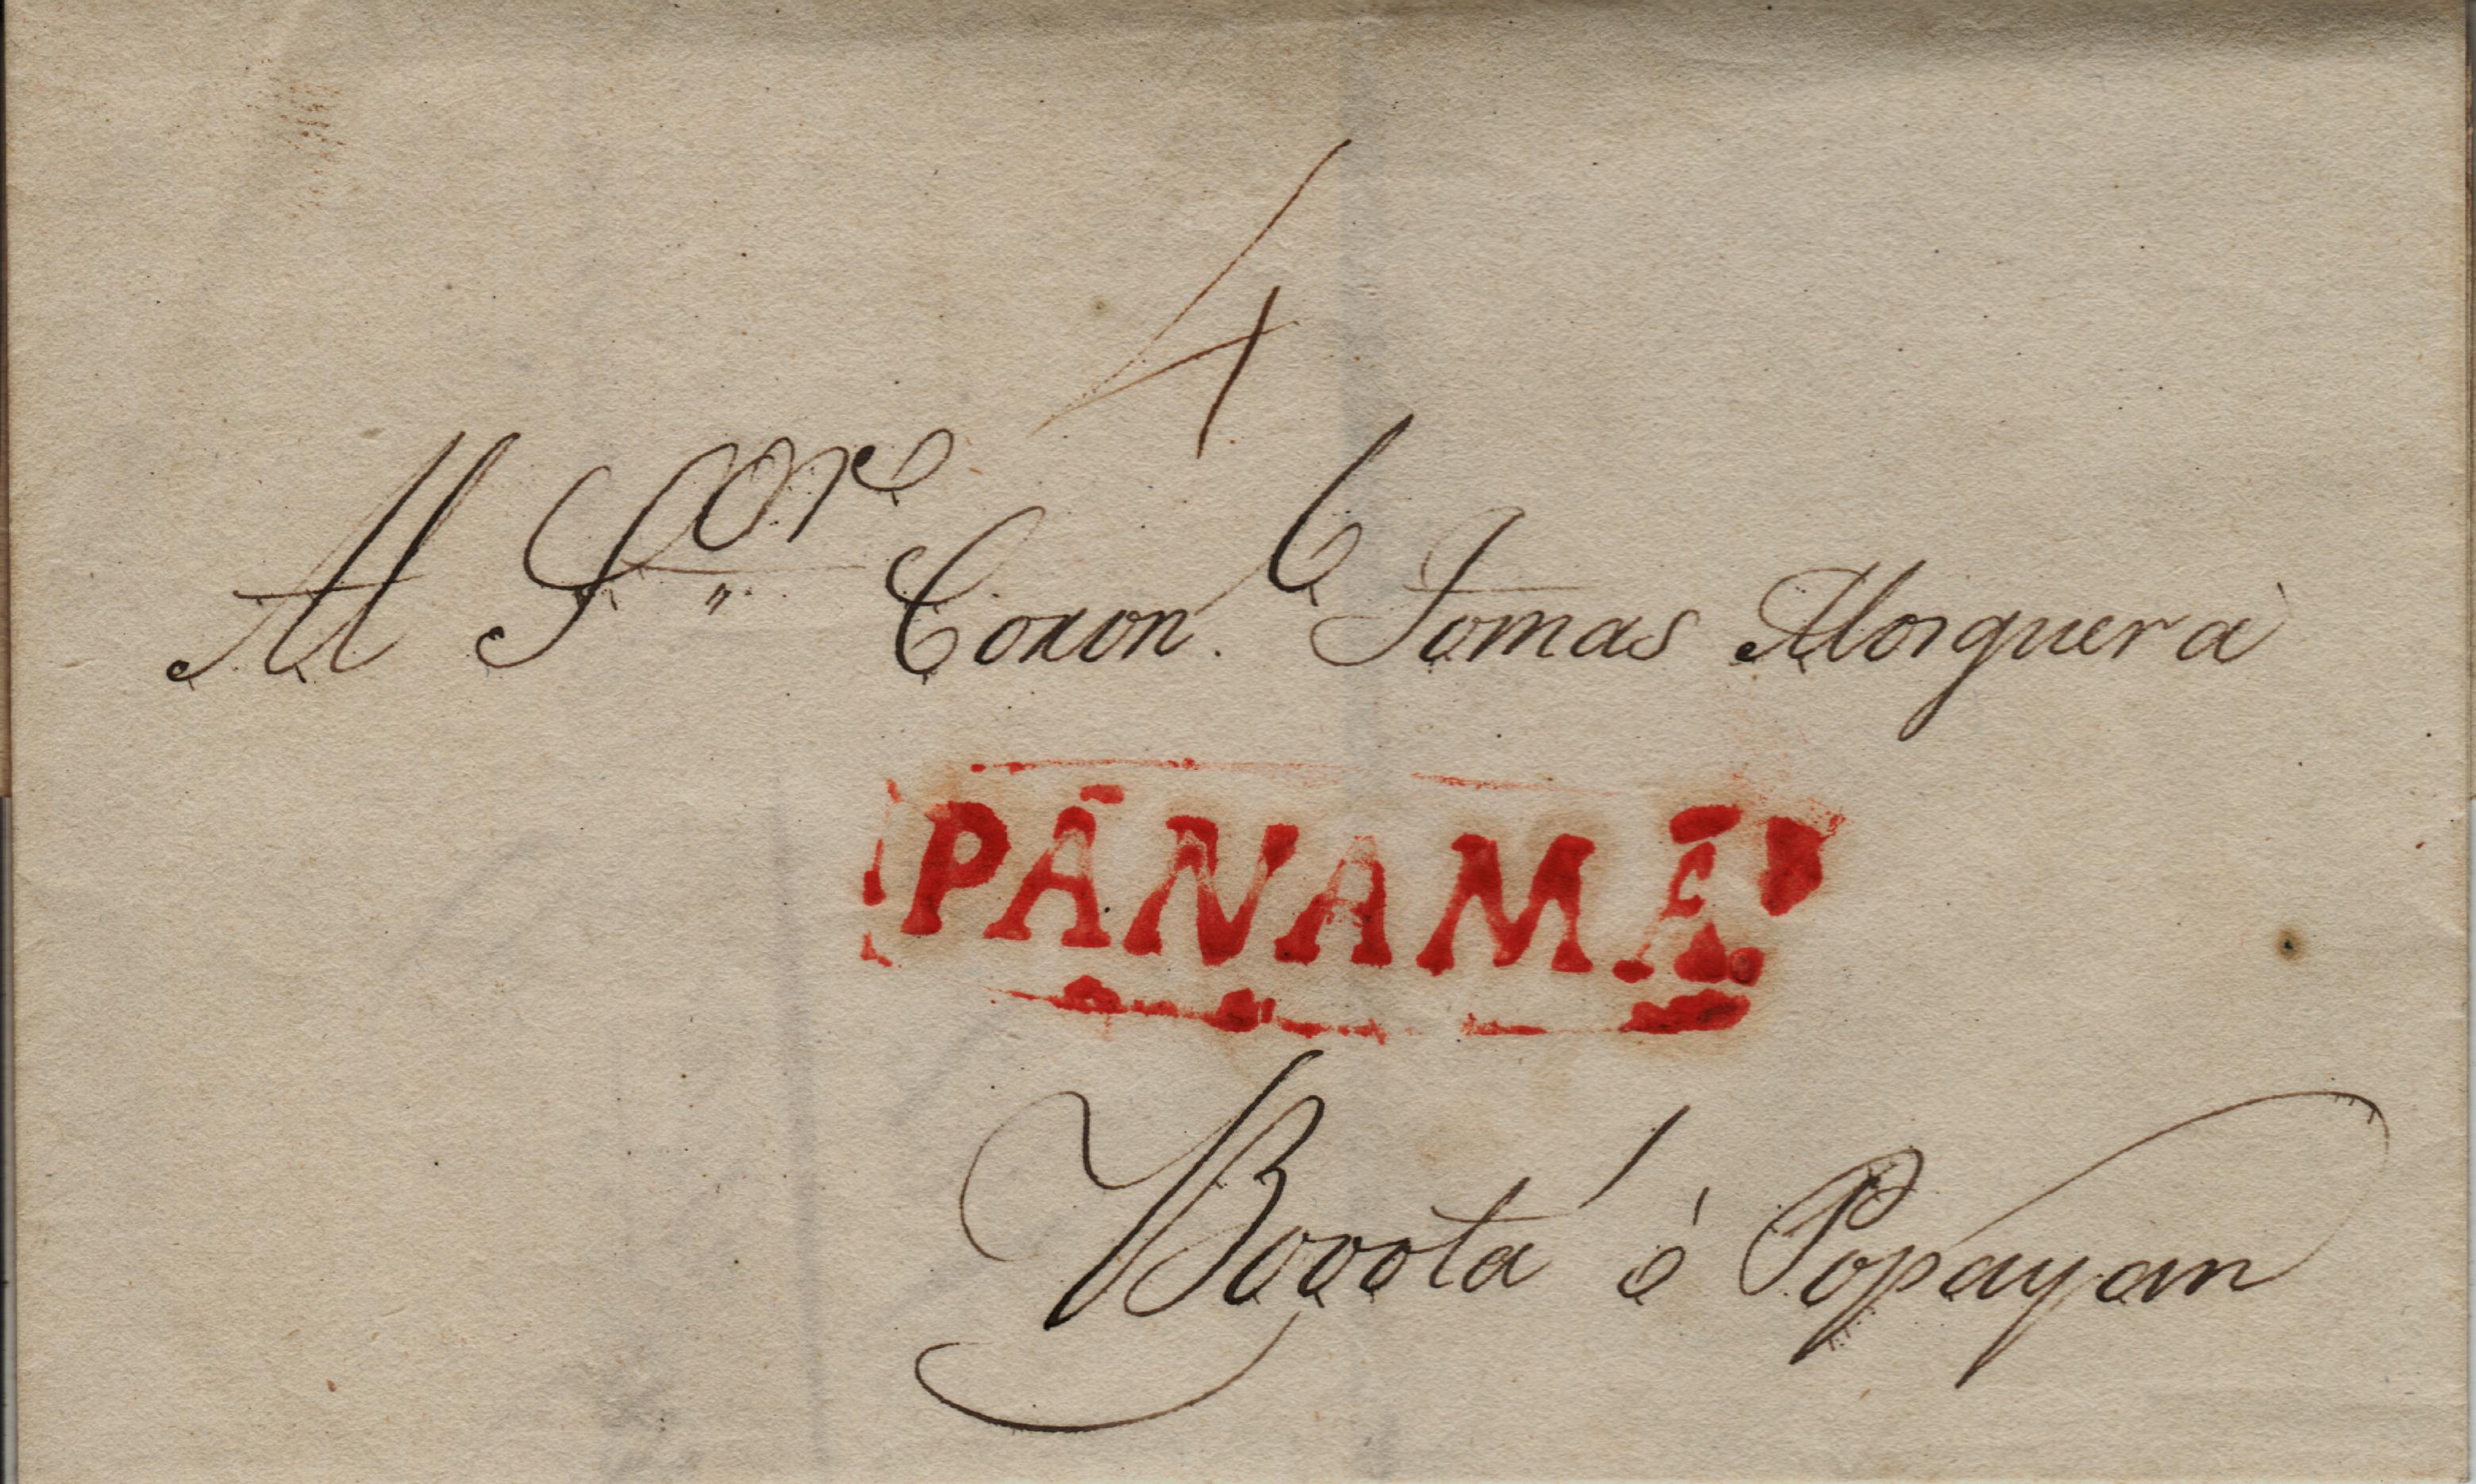 4
Al Sor Coronl Tomas Mosquera
PANAMA.
Bogotá ó Popayan